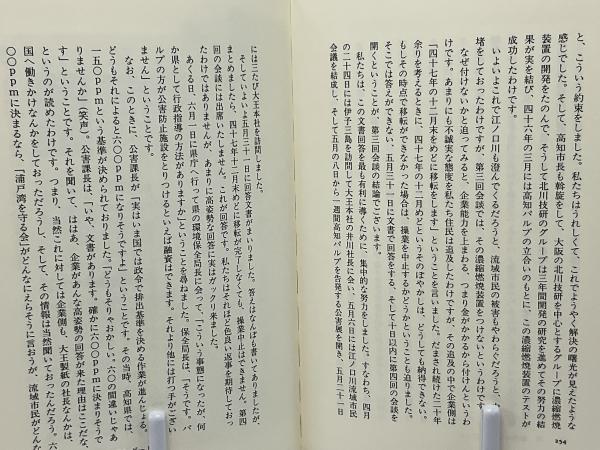 と、こういう約束をしました。私たちはうれしくて、これでようやく解決の曙光が見えたような
感じでした。そして、高知市長も斡旋をして、大阪の北川技研を中心とするグループに濃縮燃焼
装置の開発をたのんで、そうして北川技研のグループは三年間開発の研究を進めてその努力の結
果が実を結び、四十六年の三月には高知パルプの立合いのもとに、この濃縮燃焼装置のテストが
成功したわけです。
いよいよこれで江ノ口川も澄んでくるだろうと、流域市民の被害もやわらぐだろうと、
堵をしておったわけですが、第三回会談では、その濃縮燃焼装置をつけないというわけです。
なぜ付けないかと追ってみると、企業能力を上まわる、つまり金がかかるから付けんというわ
けです。あまりにも不誠実な態度を私たち住民は追及したわけですが、その追及の中で企業側は
「四十七年の十二月末をめどに移転をします」ということを言いました。だまされ続けた二十年
余りを考えるときに、四十七年の十二月めどというそのぼやかしは、どうしても納得できない。
もしその時点で移転ができなかった場合は、操業を中止するかどうかということも迫りました。
そこでは答えができない、五月三十一日に文書で回答をする、そして十日以内に第四回の会談を
開くということが、第三回会談の結論でございます。
私たちは、この文書回答を最も有利に導くために、集中的な努力をしました。すなわち、四月
の二十四日には伊予三島を訪問して大王本社の井川社長に会い、五月六日には江ノ口川流域市民
会議を結成し、そして五月の八日から一週間高知パルプを告発する公害展を開き、五月二十一日
254
には三たび大王本社を訪問しました。
そしていよいよ五月三十一日に回答文書がまいりました。答えはなんも書いてありましたが、
まとめましたら、四十七年十二月末に移転が完了しなくても、操業中止はできません。第四
回の会談には出席いたしません。これが回答です。私たちはそれほど色良い返事を期待しておっ
たわけではありませんが、あまりに高姿勢な回答に実はガックリ来ました。
あくる日、六月一日に県庁へ行って県の環境保全局長に会って、「こういう事態になったが、何
か県として行政指導の方法がありますか」ということを尋ねました。保全局長は、「そうです。パ
ルプの方が公害防止施設をとりつけるといえば融資はできます。それより他には打つ手がござい
ません」ということです。
なお、このときに、公害課長が「実はいま国では政令で排出基準を決める作業が進んじょる。
どうもそれによると六〇〇ppmになりそうですよ」ということです。その当時、高知県では、
一五〇ppmという基準が決められておりました。「どうもそりゃおかしい。六〇の間違いじゃあ
りませんか」(笑声)。公害課長は、「いや、文書があります。確かに六〇〇ppmに決まりそうで
す」ということです。それを聞いて、ははあ、企業があんな高姿勢の回答が来た理由はここだな、
というのが読めたわけです。つまり、当然これに対しては企業側も、大王製紙の社長なんかは、
国へ働きかけなんかをしておっただろうし、そして、その情報は当然聞いておったんだろう。六
〇〇ppmに決まるなら、「浦戸湾を守る会」がどんなにえらそうに言おうが、流域市民がどんな